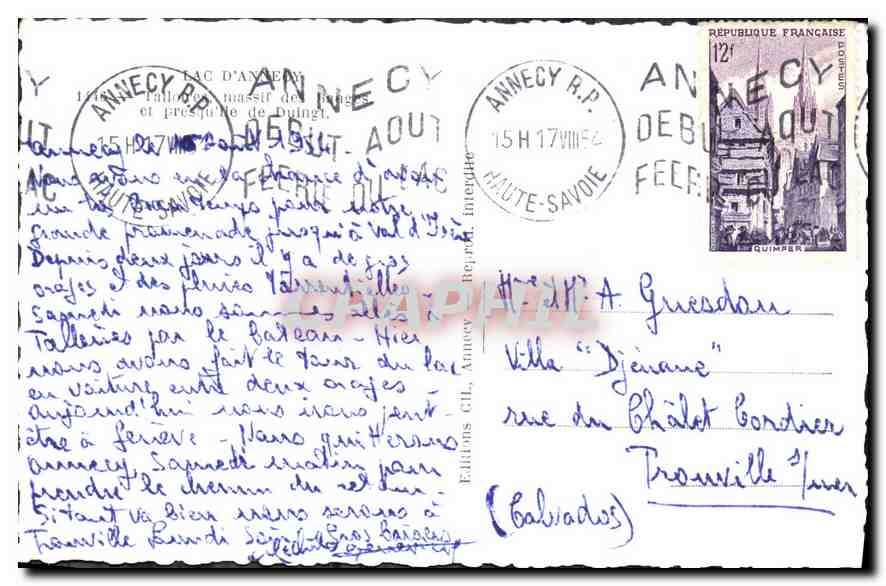 LAC D'ANNECY
Talloires, massif des Bauges
et presqu'île de Duingt.
ANNECY R.P.
15H 17 VIII 54
HAUTE-SAVOIE
ANNECY
DEBUT AOUT
FEERIE DU LAC
ANNECY R.P.
15H 17 VIII 54
HAUTE-SAVOIE
ANNECY
DEBUT AOUT
FEERIE DU LAC
RÉPUBLIQUE FRANÇAISE
12f
POSTES
QUIMPER
Annecy le août 1954
Nous avons eu la chance d'avoir
un très beau temps pour notre
grande promenade jusqu'à Val d'Isère
Depuis deux jours il y a de gros
orages et des pluies torrentielles -
Samedi nous sommes allés à
Talloires par le bateau - Hier
nous avons fait le tour du lac
en voiture entre deux orages -
aujourd'hui nous irons peut-
être à Genève - Nous quitterons
Annecy Samedi matin pour
prendre le chemin du retour -
Si tout va bien nous serons à
Trouville Lundi Soir Gros baisers
Editions CIL, Annecy Reprod. interdite
CPAPHIL
Mme et Mr A. Guesdon
Villa "Djénane"
rue du Châlet Cordier
Trouville s/mer
(Calvados)